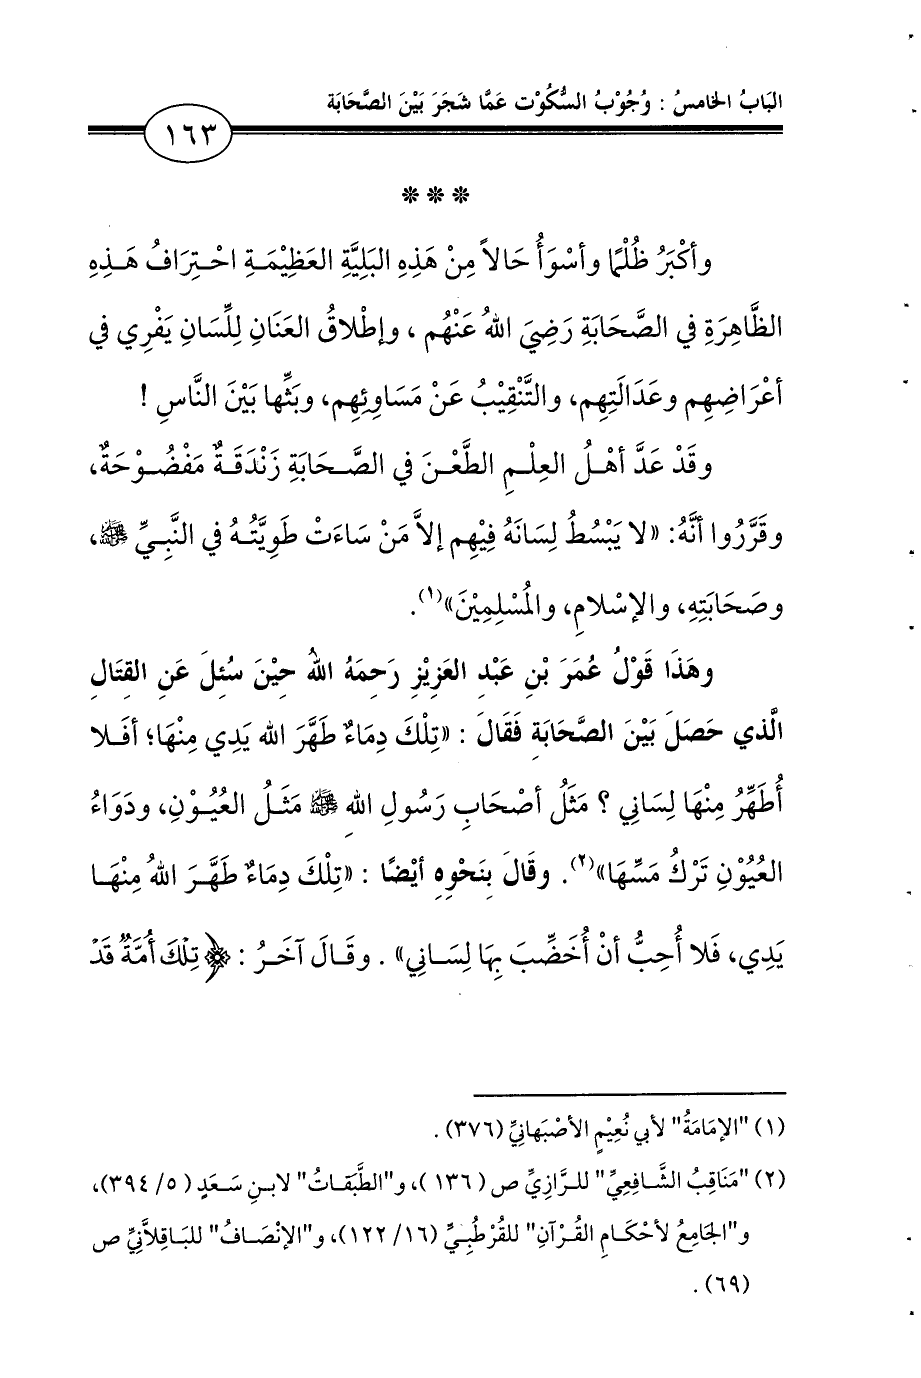 البَابُ الخَامسُ : وُجُوْبُ السُّكُوْت عَمَّا شَجَرَ بَيْنَ الصَّحَابَة
١٦٣
***
وأكْبَرُ ظُلْمًا وأسْوَأُ حَالاً مِنْ هَذِهِ البَلِيَّةِ العَظِيْمَةِ احْتِرَافُ هَذِهِ
الظَّاهِرَةِ في الصَّحَابَةِ رَضِيَ اللهُ عَنْهُم ، وإطْلاقُ العَنَانِ للِّسَانِ يَفْرِي في
أعْرَاضِهِم وعَدَالَتِهِم، والتَّنْقِيْبُ عَنْ مَسَاوِئِهِم، وبَثِّها بَيْنَ النَّاسِ !
وقَدْ عَدَّ أهْلُ العِلْمِ الطَّعْنَ في الصَّحَابَةِ زَنْدَقَةٌ مَفْضُوْحَةٌ،
وقَرَّرُوا أنَّهُ: «لا يَبْسُطُ لِسَانَهُ فِيْهِم إلاَّ مَنْ سَاءَتْ طَوِيَّتُهُ في النَّبِيِّ ﷺ،
وصَحَابَتِهِ، والإسْلامِ، والمُسْلِمِيْنَ»(١).
وهَذَا قَوْلُ عُمَرَ بْنِ عَبْدِ العَزِيْزِ رَحِمَهُ اللهُ حِيْنَ سُئِلَ عَنِ القِتَالِ
الَّذي حَصَلَ بَيْنَ الصَّحَابَةِ فَقَالَ : «تِلْكَ دِمَاءٌ طَهَّرَ الله يَدِي مِنْهَا؛ أفَلا
أُطَهِّرُ مِنْهَا لِسَاني ؟ مَثَلُ أصْحَابِ رَسُولِ اللهِ ﷺ مَثَلُ العُيُوْنِ، ودَوَاءُ
العُيُوْنِ تَرْكُ مَسِّهَا»(٢). وقَالَ بِنَحْوِهِ أيْضًا : «تِلْكَ دِمَاءٌ طَهَّرَ اللهُ مِنْهَا
يَدِي، فَلا أُحِبُّ أنْ أُخَضِّبَ بِهَا لِسَاني» . وقَالَ آخَرُ : ﴿تِلْكَ أُمَّةٌ قَدْ
(١) "الإمَامَةُ" لأبي نُعِيْمٍ الأصْبَهانيِّ (٣٧٦) .
(٢) "مَنَاقِبُ الشَّافِعِيِّ" للرَّازِيِّ ص (١٣٦ )، و"الطَّبَقَاتُ" لابنِ سَعَدٍ (٥/ ٣٩٤)،
و"الجَامِعُ لأحْكَامِ القُرْآنِ" للقُرْطُبِيِّ (١٦/ ١٢٢)، و"الإنْصَافُ" للبَاقِلاَّنِيِّ ص
(٦٩) .